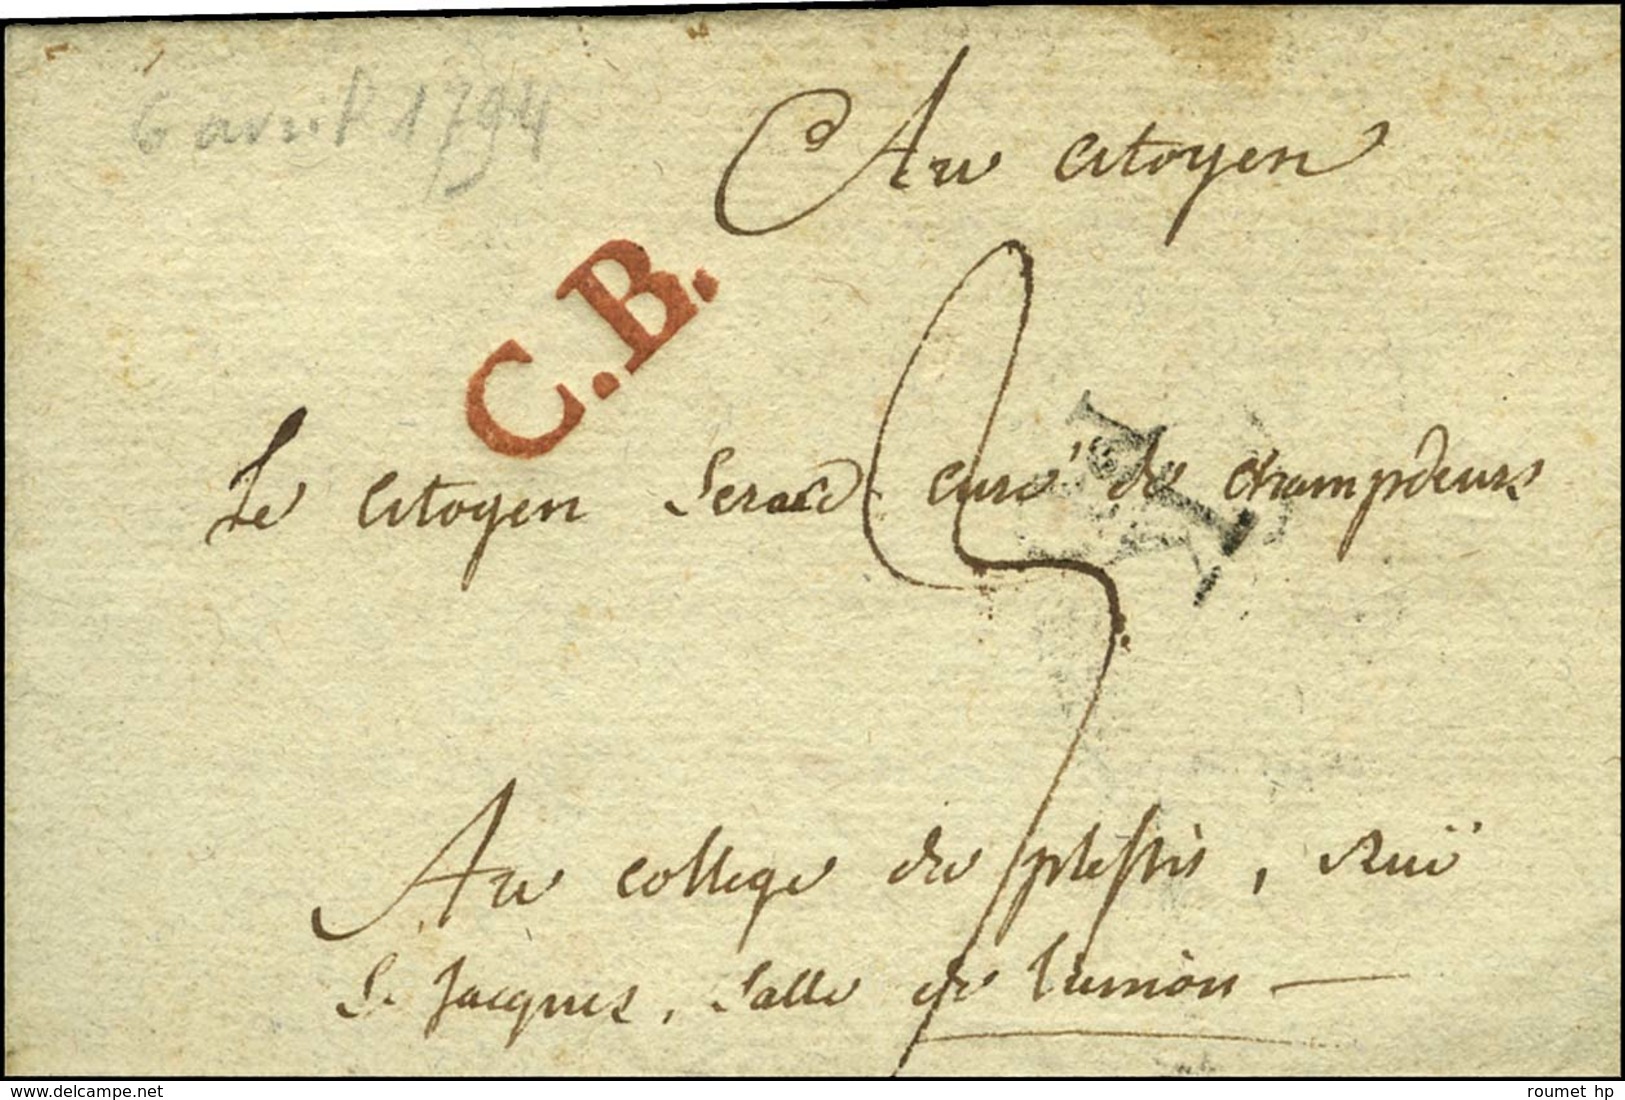 6 avril 1794
Au citoyen
C.B.
Le citoyen Serard curé de champdeurs
P
Au college du plessis, Ruë
S. Jacques, Salle de l'union
delcampe.net
roumet hp